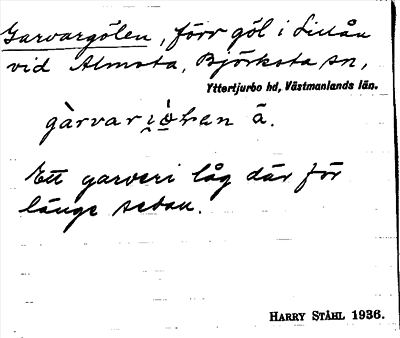 Garvargölen, förr göl i Lillån
vid Almsta, Björksta sn,
Yttertjurbo hd, Västmanlands län.
Ett garveri låg där för
länge sedan.
HARRY STÅHL 1936.